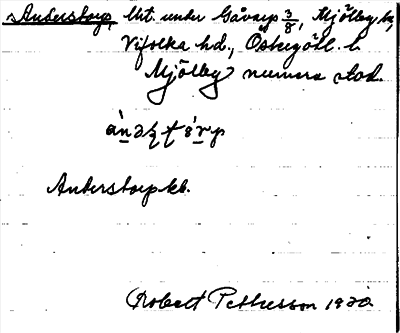 Anderstorp, lht. under Gåvarp 3/8, Mjölby sn,
Vifolka hd., Östergötl. l.
Mjölby numera stad.
Anterstorp kb.
Robert Pettersson 1920